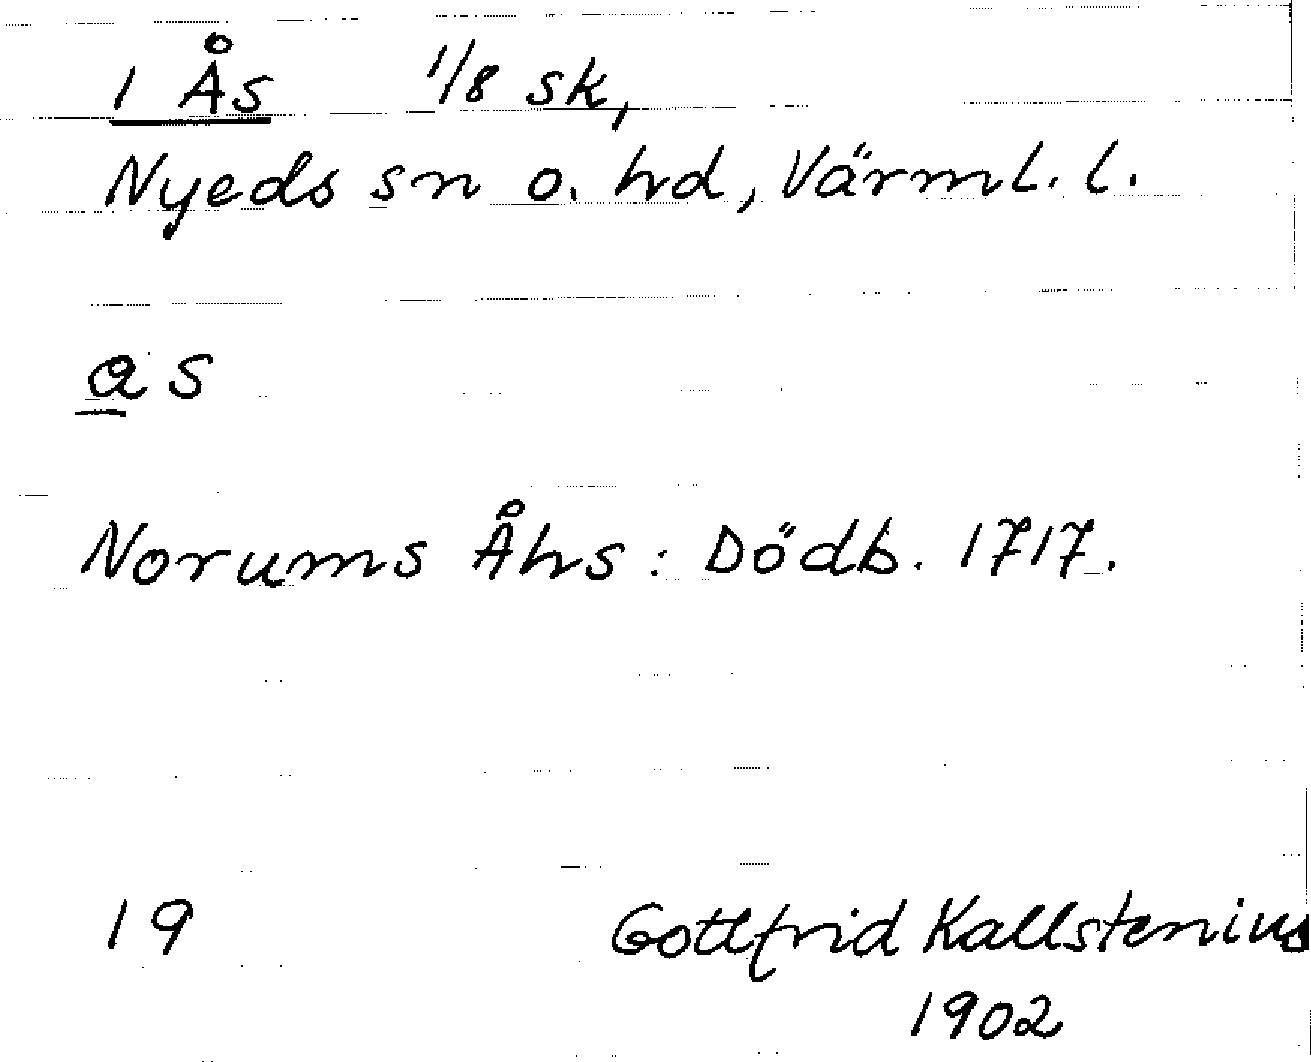 1 Ås 1/8 sk,
Nyeds sn o. hd, Värml. l.
as
Norums Åhs: Dödb. 1717.
19 Gottfrid Kallstenius
1902